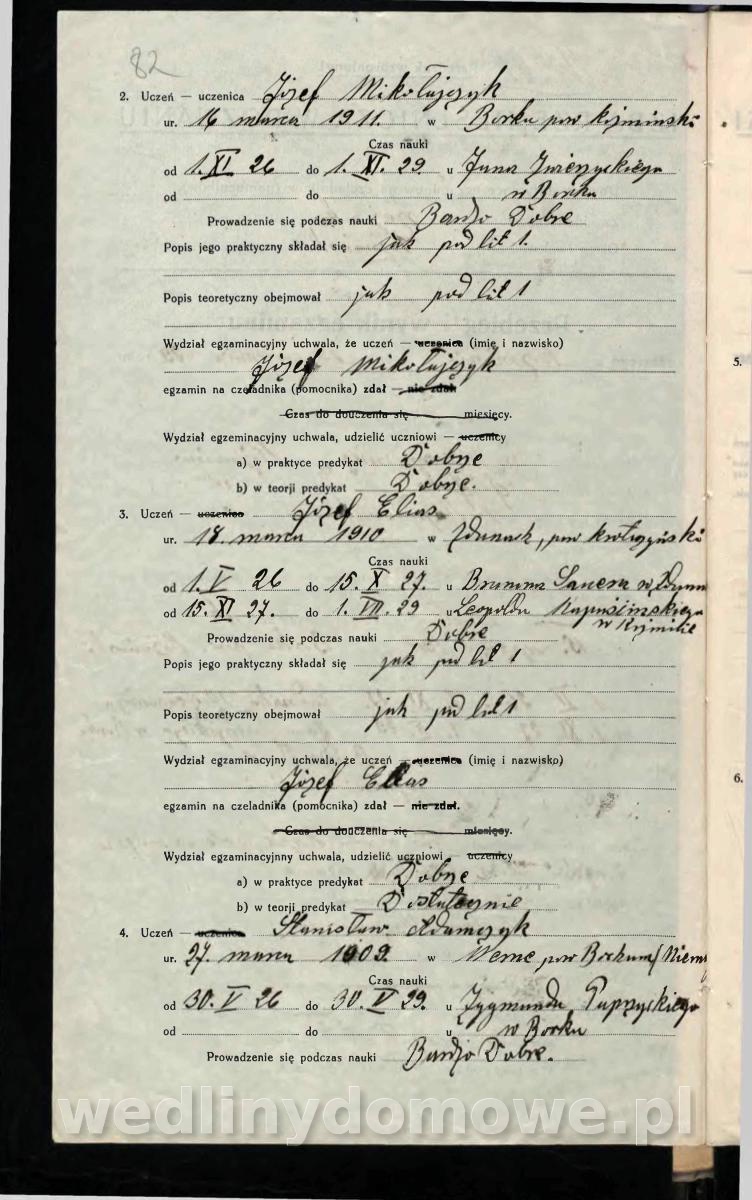 82
2. Uczeń — uczenica Józef Mikołajczyk
ur. 16 marca 1911. w Borku pow
Czas nauki
od 1. XI 26 do 1. XI. 29 u Jana
od do u w Borku
Prowadzenie się podczas nauki Bardzo Dobre
Popis jego praktyczny składał się jak pod lit 1.
Popis teoretyczny obejmował jak pod lit 1
Wydział egzaminacyjny uchwala, że uczeń — uczenica (imię i nazwisko)
Józef Mikołajczyk
egzamin na czeladnika (pomocnika) zdał — nie zdał
Czas do douczenia się miesięcy.
Wydział egzeminacyjny uchwala, udzielić uczniowi — uczenicy
a) w praktyce predykat Dobrze
b) w teorji predykat Dobrze.
3. Uczeń — uczenica Józef Elias
ur. 18. marca 1910 w Zdunach, pow
Czas nauki
od 1. V 26 do 15. X 27. u Brunona
od 15. XI 27. do 1. VII. 29 u Leopolda
w
Prowadzenie się podczas nauki Dobre
Popis jego praktyczny składał się jak pod lit 1
Popis teoretyczny obejmował jak pod lit 1
Wydział egzaminacyjny uchwala, że uczeń — uczenica (imię i nazwisko)
Józef Elias
egzamin na czeladnika (pomocnika) zdał — nie zdał.
Czas do douczenia się miesięcy.
Wydział egzaminacyjnny uchwala, udzielić uczniowi uczenicy
a) w praktyce predykat Dobrze
b) w teorji predykat Dostatecznie
4. Uczeń — uczenica Stanisław Adamczyk
ur. 27. marca 1909. w Werne pow Bochum
Czas nauki
od 30. V 26 do 30. V 29. u Zygmunda
od do u w Borku
Prowadzenie się podczas nauki Bardzo Dobre.
5.
6.
wedlinydomowe.pl